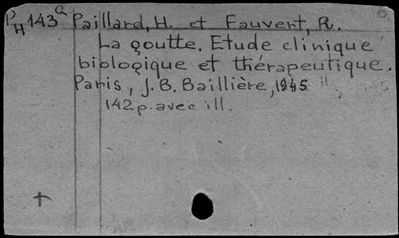 PH143a Paillard, H. et Fauvert, R.
La goutte. Etude clinique
biologique et thérapeutique.
Paris, J. B. Baillière, 1945
142 p. avec ill.